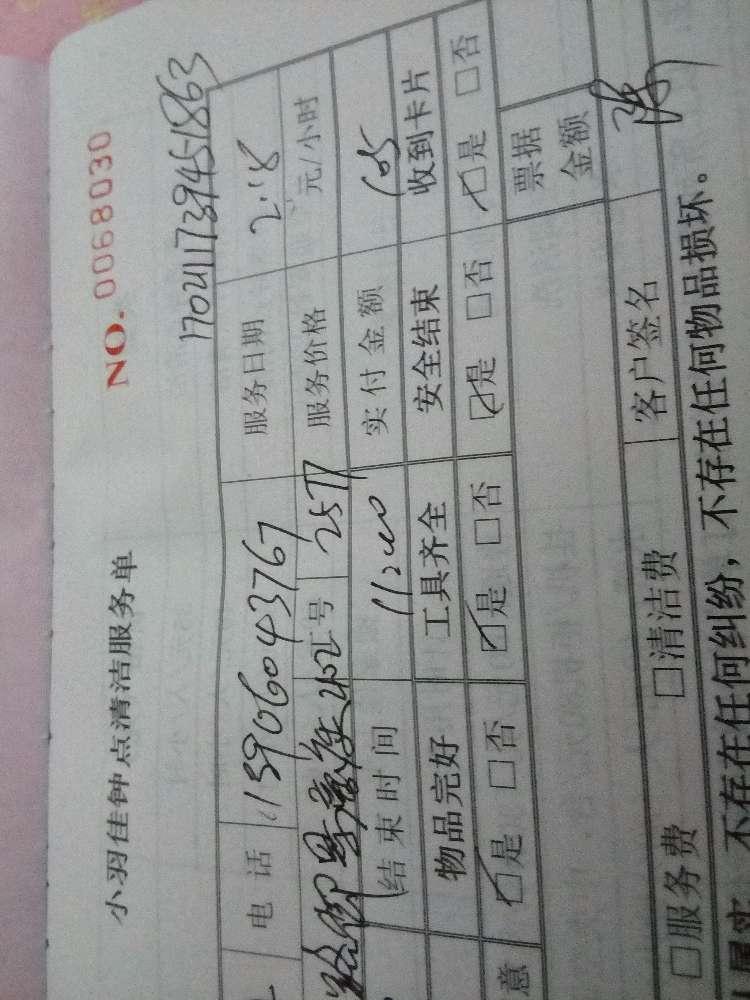 小羽佳钟点清洁服务单
NO. 0068030
1702111739451863
电话 13906043767 服务日期 2.18
402 工号 2577 服务价格 元/小时
结束时间 11:00 实付金额 105
物品完好 工具齐全 安全结束 收到卡片
意 ☑是 □否 ☑是 □否 ☑是 □否 ☑是 □否
票据金额
□服务费 □清洁费 客户签名
属实，不存在任何纠纷，不存在任何物品损坏。